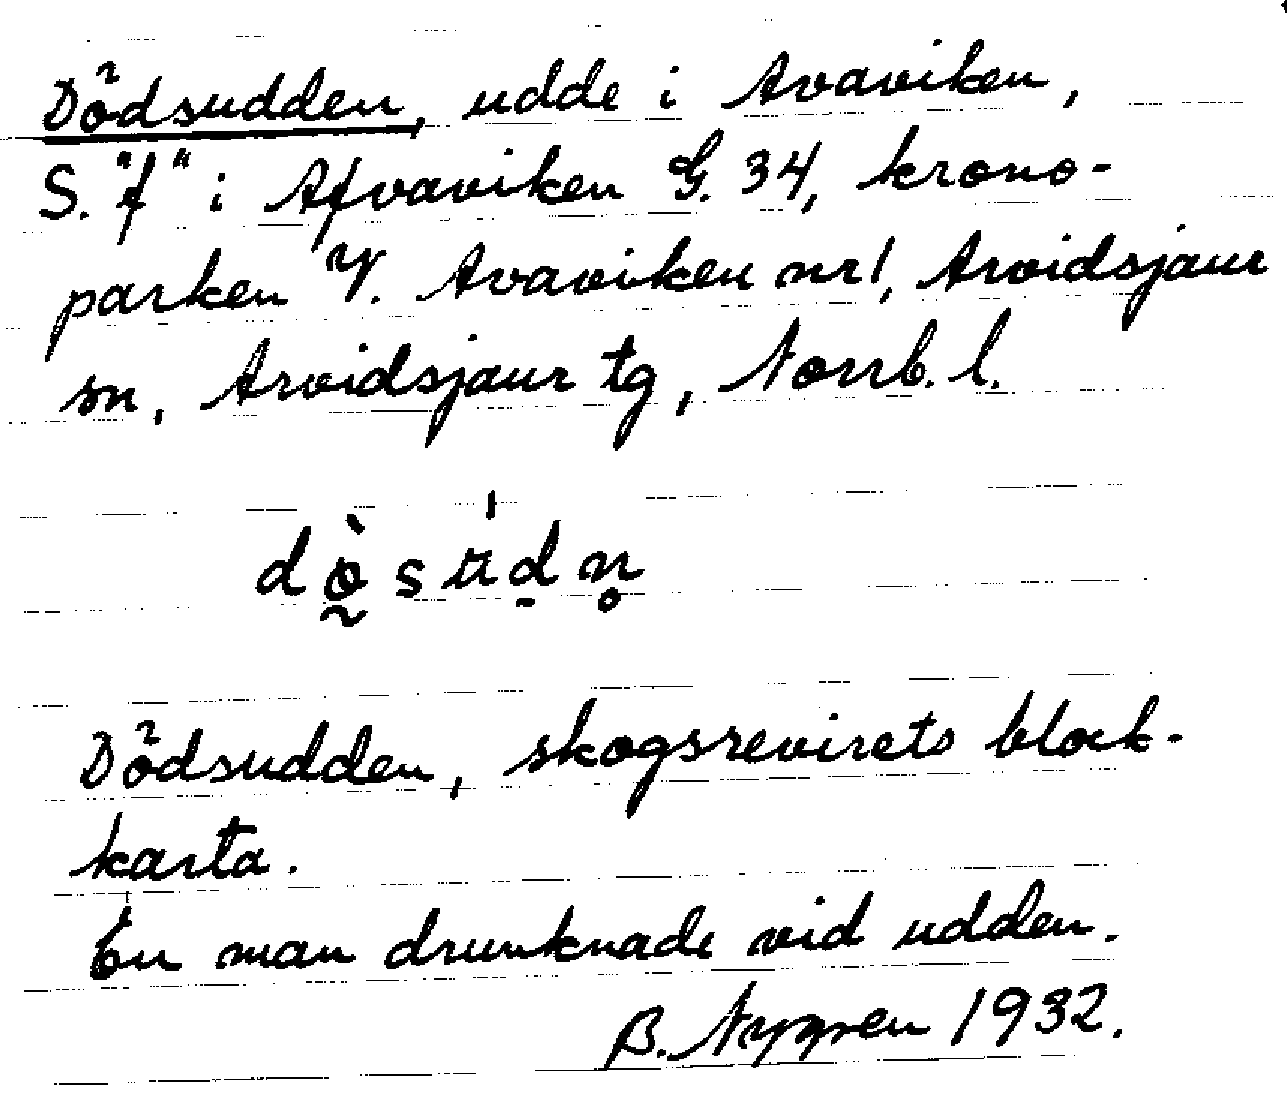 Dödsudden, udde i Avaviken,
S. "f" i Afvaviken G. 34, krono-
parken V. Avaviken nr 1, Arvidsjaur
sn, Arvidsjaur tg, Norrb. l.
dò̰sʉ̍ḏn̥
Dödsudden, skogsrevirets block-
karta.
En man drunknade vid udden.
B. Nygren 1932.